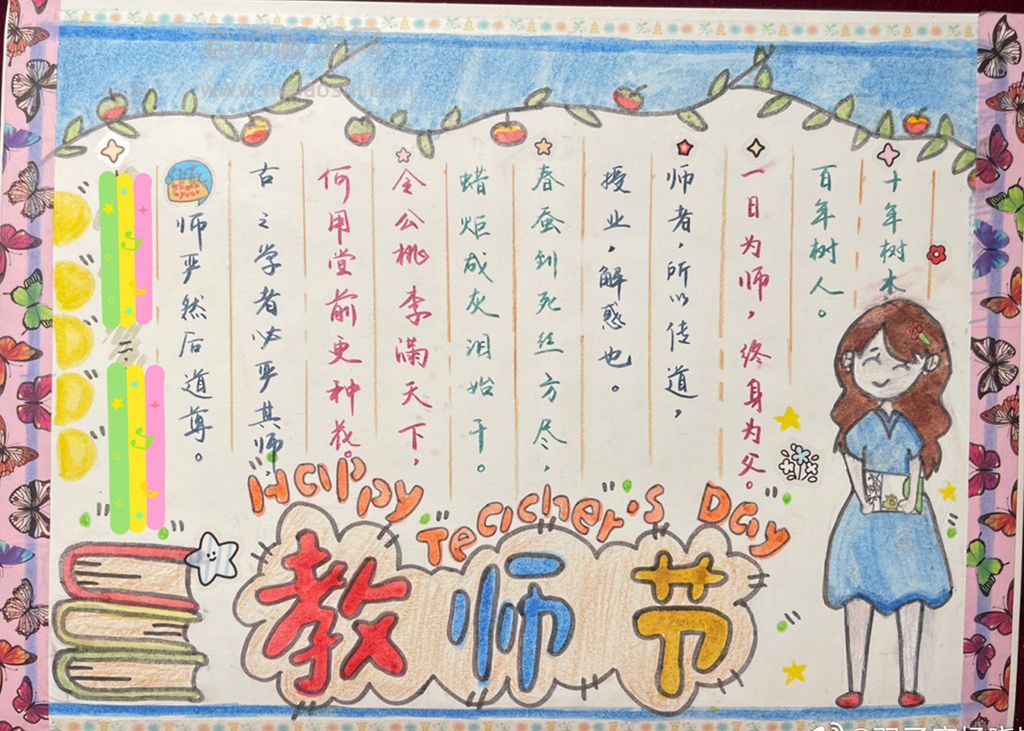 十年树木
百年树人。
一日为师，终身为父。
师者，所以传道，
授业，解惑也。
春蚕到死丝方尽，
蜡炬成灰泪始干。
令公桃李满天下，
何用堂前更种花。
古之学者必严其师，
师严然后道尊。
thank you
Happy Teacher's Day
教师节